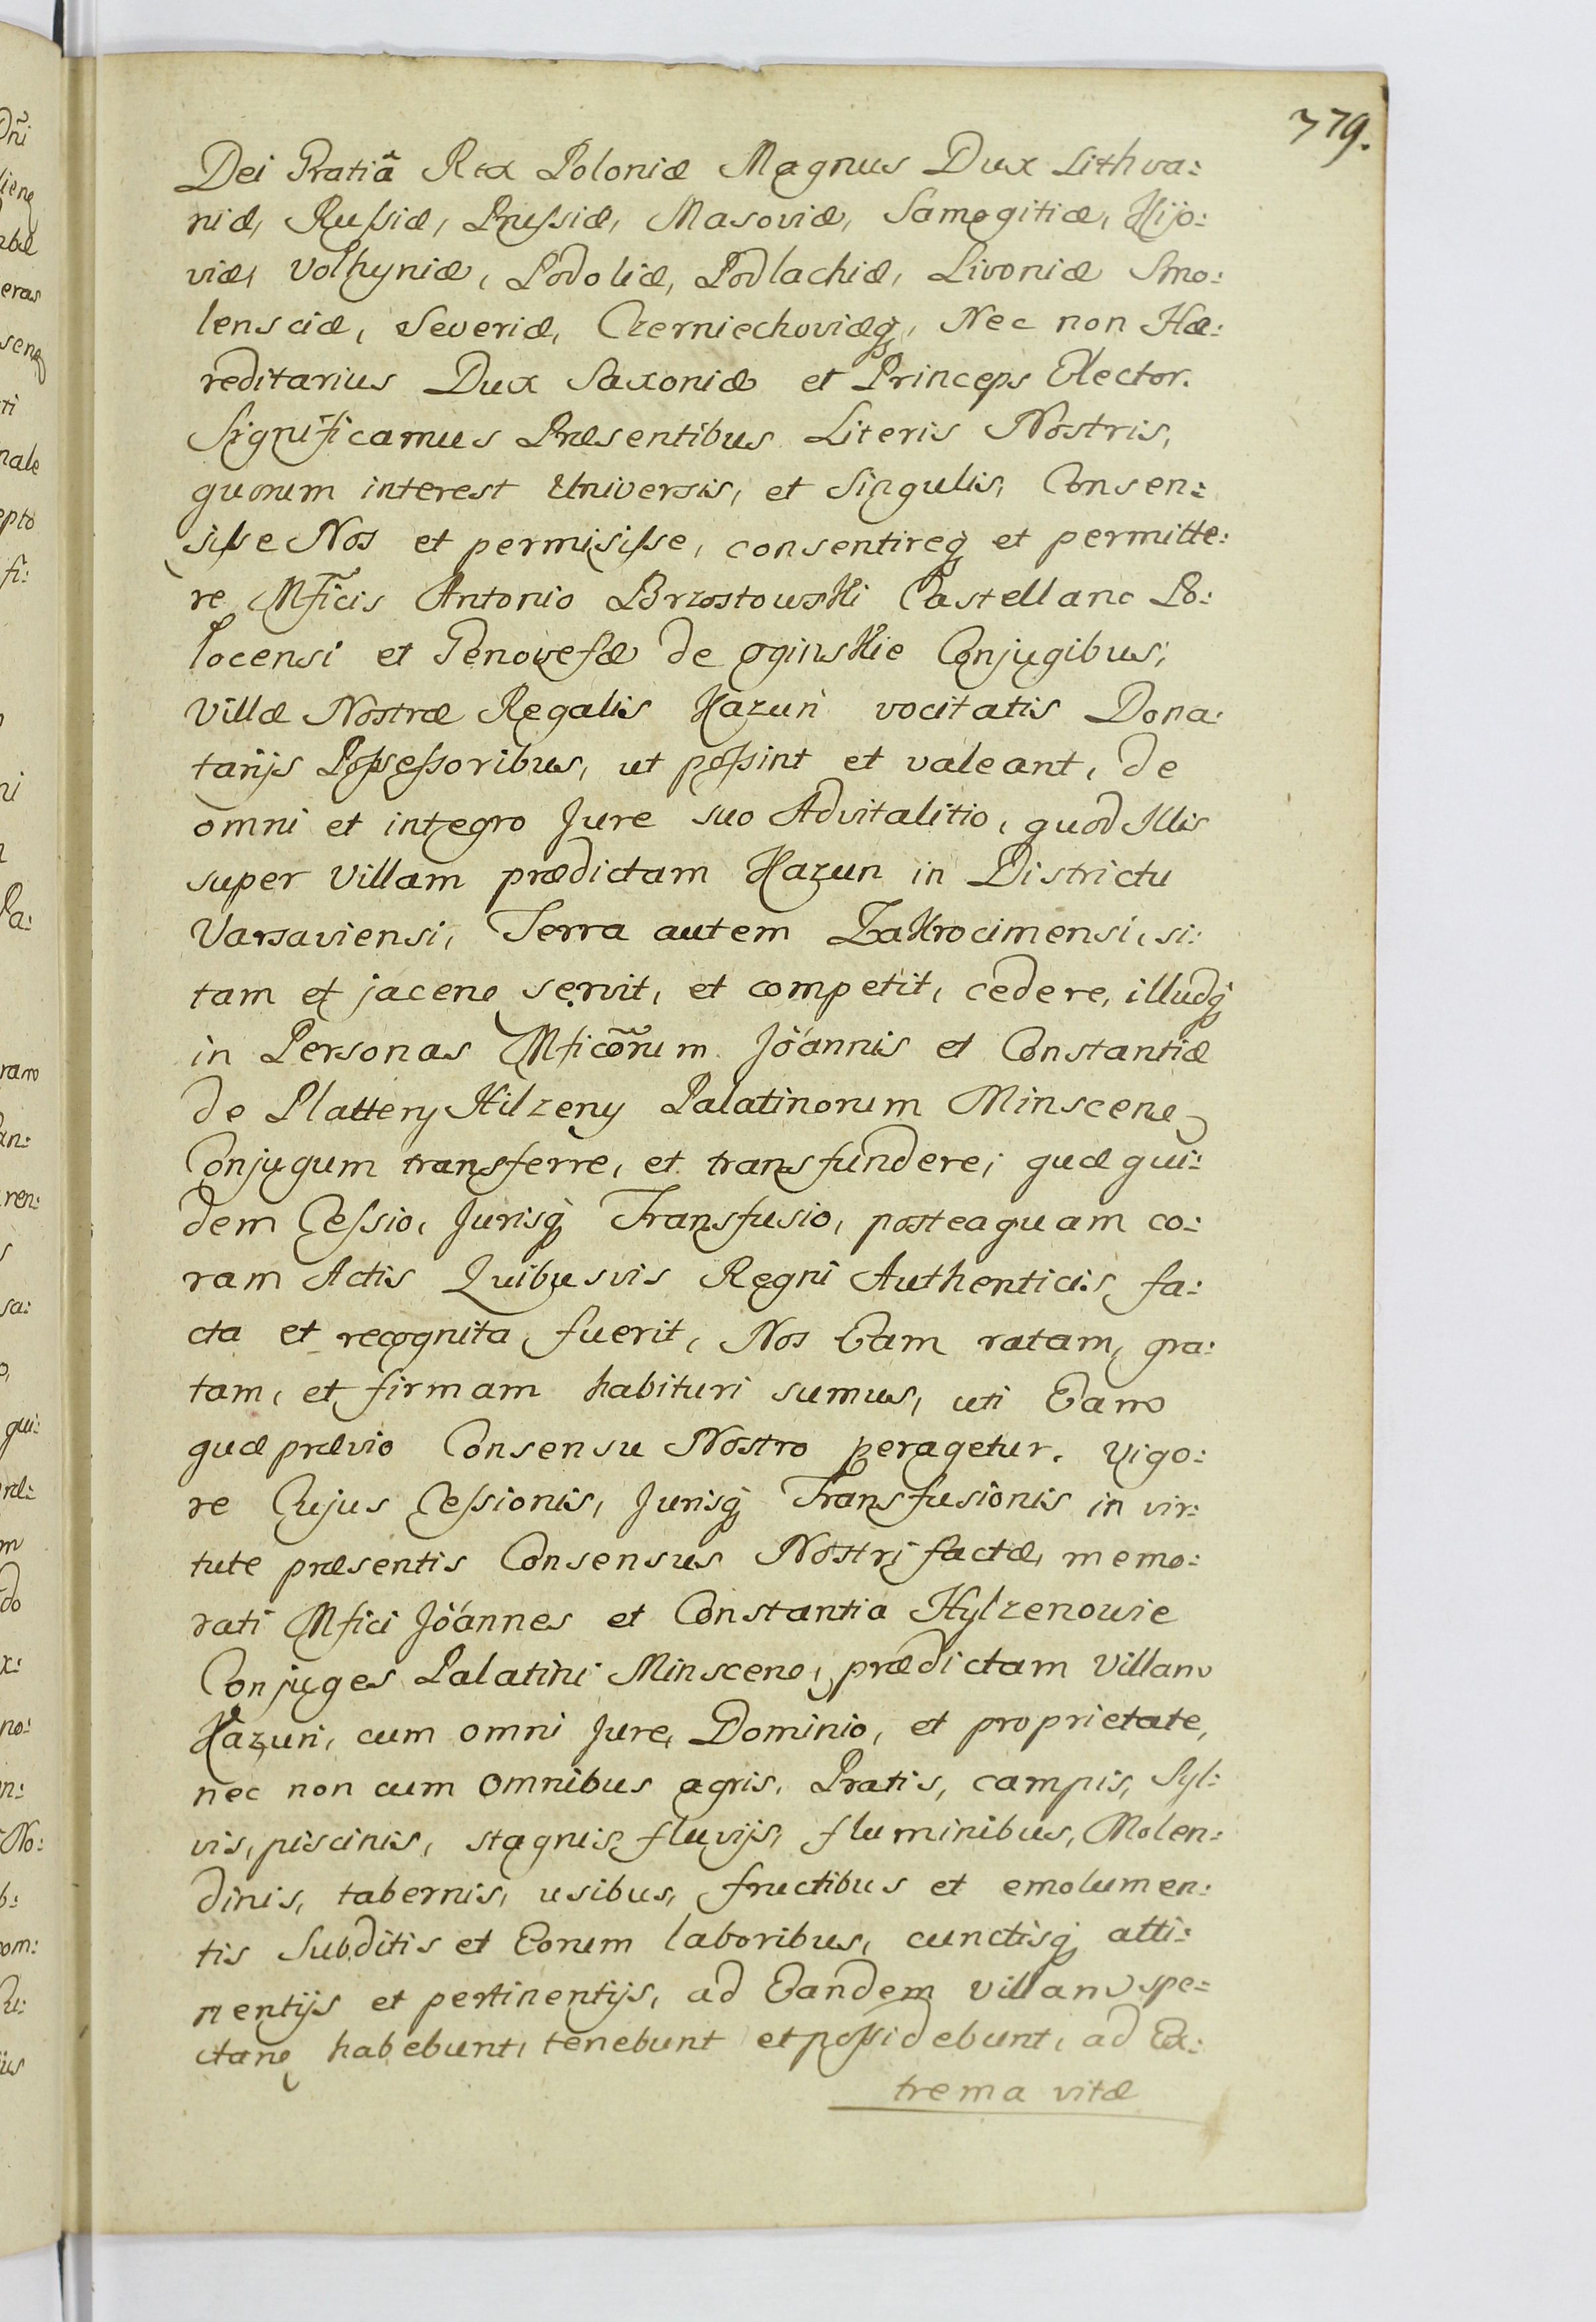 379.
Dei Gratiâ Rex Poloniæ Magnus Dux Lithva:
niæ, Russiæ, Prussiæ, Masoviæ, Samogitiæ, Kijo:
viæ, Volhyniæ, Podoliæ, Podlachiæ, Livoniæ Smo:
lensciæ, Severiæ, Czerniechoviæq, Nec non Hæ:
reditarius Dux Saxoniæ et Princeps Elector.
Significamus Præsentibus Literis Nostris,
quorum interest Universis, et Singulis, Consen:
sisse Nos et permisisse, consentireq et permitte:
re Mficis Antonio Brzostowski Castellano Po:
locensi et Genovefæ de Oginskie Conjugibus,
Villæ Nostræ Regalis Kazuń vocitatis Dona:
tarijs Possessoribus, ut possint et valeant, de
omni et integro Jure suo Advitalitio, quod Illis
super Villam prædictam Kazun in Districtu
Varsaviensi, Terra autem Zakrocimensi, si:
tam et jacene servit, et competit, cedere, illudq
in Personas Mficõrum Joánnis et Constantiæ
de Plattery Hilzeny Palatinorum Minscene
Conjugum transferre, et transfundere; quæ qui:
dem Cessio, Jurisq Transfusio, posteaquam co:
ram Actis Quibusvis Regni Authenticis, fa:
cta et recognita fuerit, Nos Eam ratam, gra:
tam, et firmam habituri sumus, uti Eam
quæ prævio Consensu Nostro peragetur. Vigo:
re Cujus Cessionis, Jurisq Transfusionis in vir:
tute præsentis Consensus Nostri factæ, memo:
rati Mfici Joánnes et Constantia Hylzenowie
Conjuges Palatini Minscene, prædictam Villam
Kazuń, cum omni Jure, Dominio, et proprietate,
nec non cum omnibus agris, Pratis, campis, Syl:
vis, piscinis, stagnis, fluvijs, fluminibus, Molen:
dinis, tabernis, usibus, fructibus et emolumen:
tis Subditis et Eorum laboribus, cunctisq atti:
nentijs et pertinentijs, ad Eandem Villam spe:
ctane habebunt, tenebunt et possidebunt, ad Ex:
trema vitæ